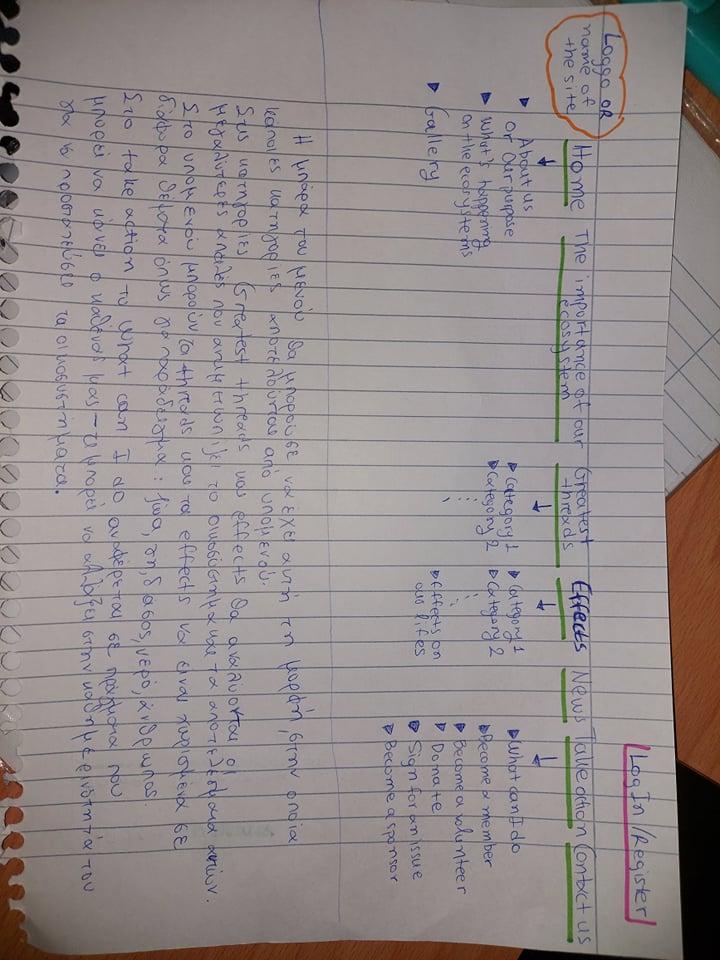 Loggo OR
name of
the site
LogIn/Register
Home
The importance of our
ecosystem
Greatest
threads
Effects
News
Take action
Contact us
About us
or Our purpose
What's happening
on the ecosystems
Gallery
Category 1
Category 2
Category 1
Category 2
Effects on
our lifes
What can I do
Become a member
Become a volunteer
Donate
Sign for an issue
Become a sponsor
Η μπάρα του μενού θα μπορούσε να έχει αυτή τη μορφή, στην οποία
κάποιες κατηγορίες αποτελούνται από υπομενού.
Στις κατηγορίες Greatest threads και effects θα αναλύονται οι
μεγαλύτερες απειλές που αντιμετωπίζει το οικοσύστημα και τα αποτελέσματα αυτών.
Στο υπομενού μπορούν τα threads και τα effects να είναι χωρισμένα σε
διάφορα θέματα όπως για παράδειγμα: ζώα, γη, δάσος, νερό, άνθρωπος.
Στο take action το What can I do αναφέρεται σε πράγματα που
μπορεί να κάνει ο καθένας μας - τι μπορεί να αλλάξει στην καθημερινότητά του
για να προστατεύσει τα οικοσυστήματα.